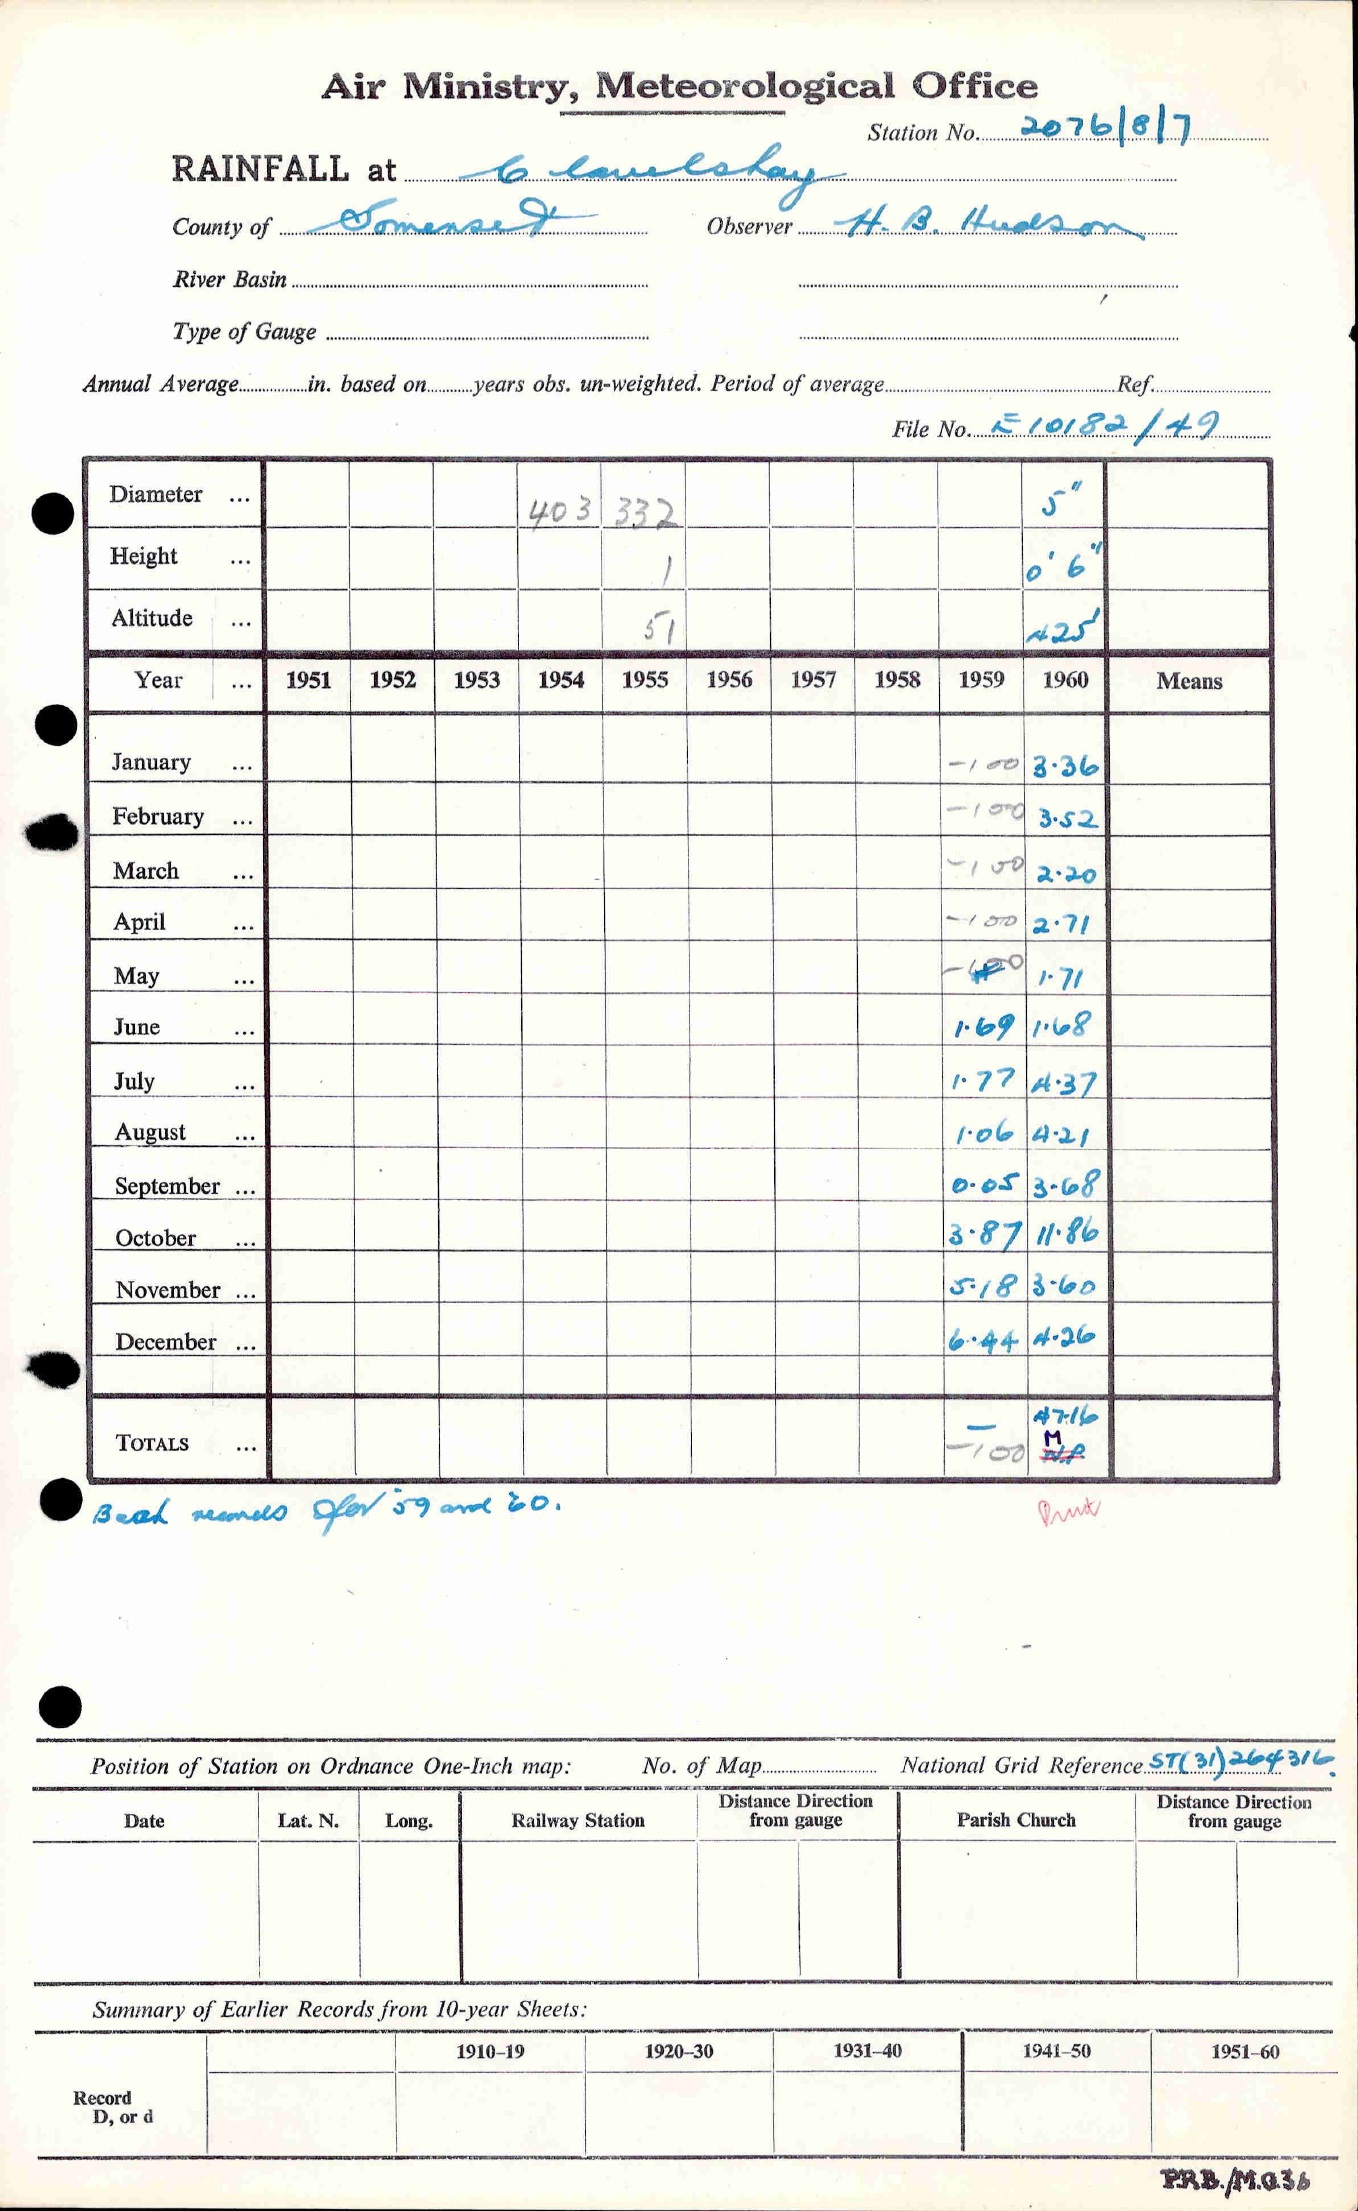 Air Ministry, Meteorological Office
Station No. 2076/8/7
RAINFALL at Clawelshay
County of Somerset Observer H. B. Hudson
River Basin
Type of Gauge
Annual Average in. based on years obs. un-weighted. Period of average Ref.
File No. E10182/49
Diameter ... 403 332 5"
Height ... 1 0' 6"
Altitude ... 51 425'
Year ... 1951 1952 1953 1954 1955 1956 1957 1958 1959 1960 Means
January ... -100 3.36
February ... -100 3.52
March ... -100 2.20
April ... -100 2.71
May ... -100 1.71
June ... 1.69 1.68
July ... 1.77 4.37
August ... 1.06 4.21
September ... 0.05 3.68
October ... 3.87 11.86
November ... 5.18 3.60
December ... 6.44 4.26
TOTALS ... — 47.16
-100 M N.P.
Back records for '59 and '60. Print
Position of Station on Ordnance One-Inch map: No. of Map National Grid Reference ST(31)264316.
Date Lat. N. Long. Railway Station Distance Direction from gauge Parish Church Distance Direction from gauge
Summary of Earlier Records from 10-year Sheets:
1910–19 1920–30 1931–40 1941–50 1951–60
Record
D, or d
P.R.B./M.O.36